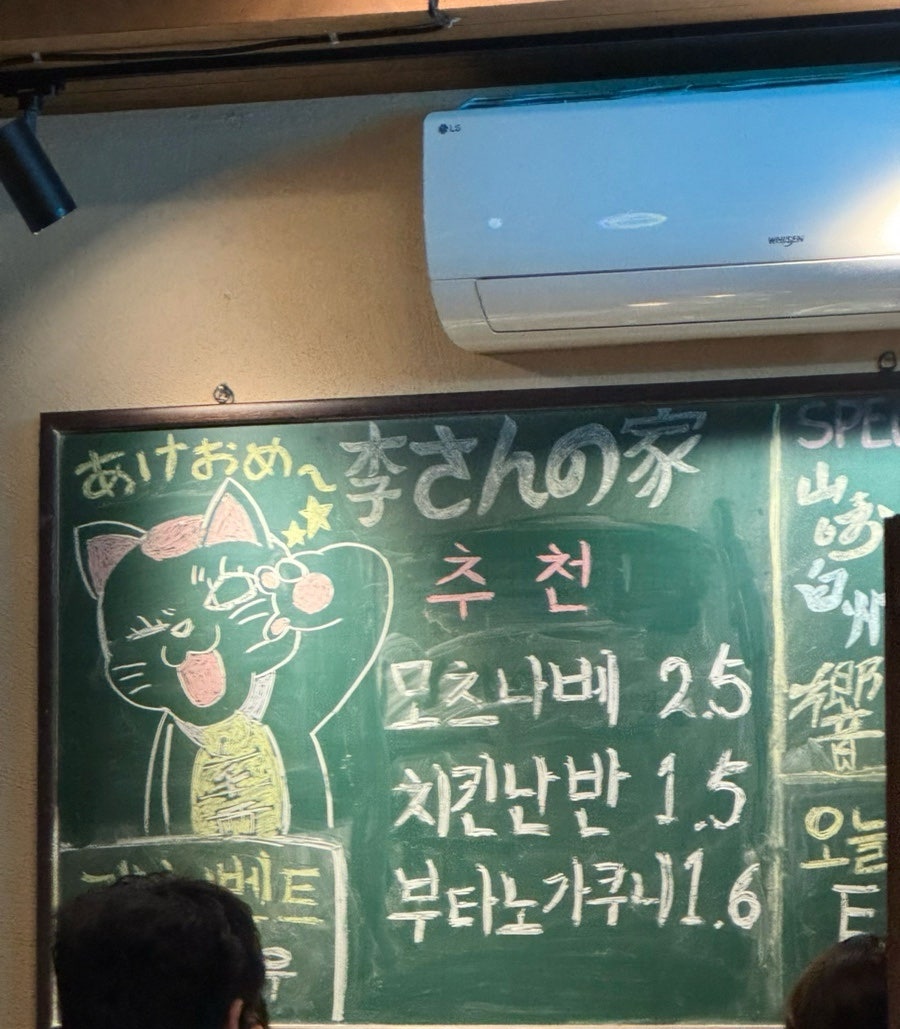 LG
WHISEN
あけおめ〜
李さんの家
추천
모츠나베 2.5
치킨난반 1.5
부타노가쿠니 1.6
벤트
우
山崎
白州
響
오늘
E